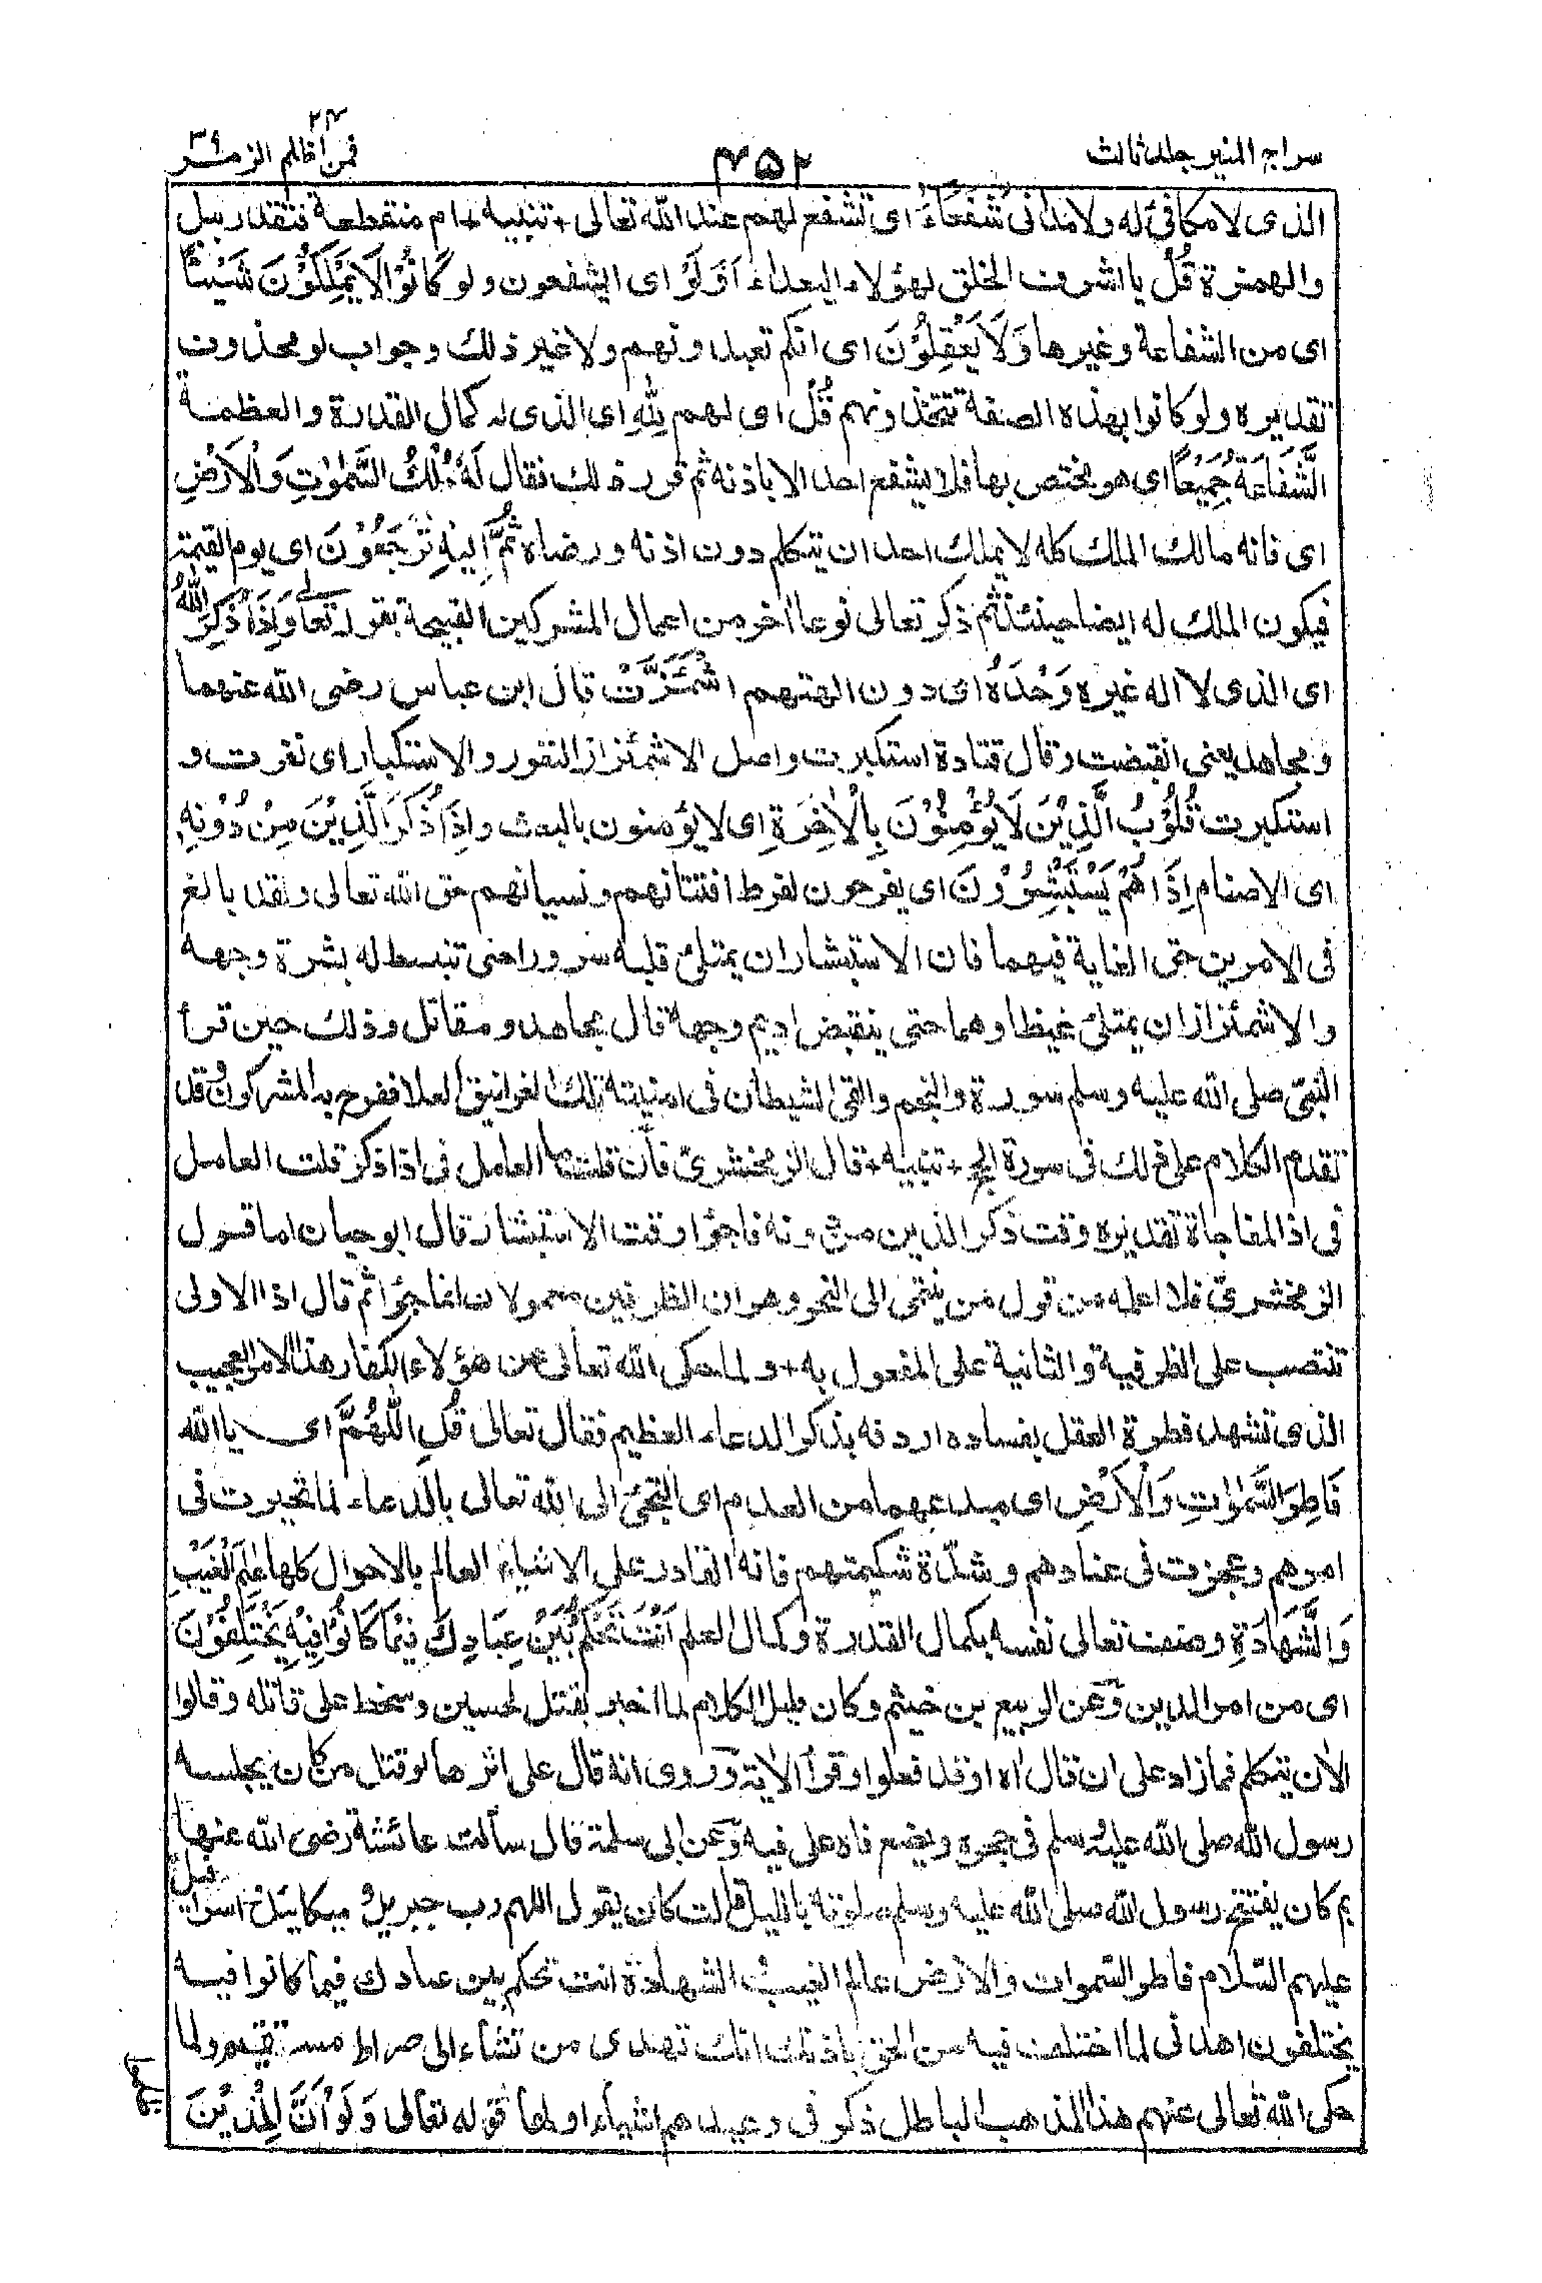 سراج المنير جلد ثالث
۴۵۲
فمن اظلم ۲۴ الزمر ۳۹
الذى لا مكافئ له ولا مدانى شُفَعَاءَ اى تشفع لهم عند الله تعالى + تنبيه + ام منقطعة فتقدر ببل
والهمزة قُلْ يا اشرف الخلق لهؤلاء البعداء اَوَلَوْ اى ايشفعون ولو كَانُوْا لَا يَمْلِكُوْنَ شَيْئًا
اى من الشفاعة وغيرها وَلَا يَعْقِلُوْنَ اى انكم تعبدونهم ولا غير ذلك وجواب لو محذوف
تقديره ولو كانوا بهذه الصفة تتخذونهم قُلْ اى لهم لِلّٰهِ اى الذى له كمال القدرة والعظمة
الشَّفَاعَةُ جَمِيْعًا اى هو مختص بها فلا يشفع احد الا باذنه ثم قرر ذلك فقال لَهٗ مُلْكُ السَّمٰوٰتِ وَالْاَرْضِ
اى فانه مالك الملك كله لا يملك احد ان يتكلم دون اذنه ورضاه ثُمَّ اِلَيْهِ تُرْجَعُوْنَ اى يوم القيمة
فيكون الملك له ايضا حينئذ ثم ذكر تعالى نوعا اخر من اعمال المشركين القبيحة بقوله تعالى وَاِذَا ذُكِرَ اللّٰهُ
اى الذى لا اله غيره وَحْدَهُ اى دون الهتهم اشْمَئَزَّتْ قال ابن عباس رضى الله عنهما
ومجاهد يعنى انقبضت وقال قتادة استكبرت واصل الاشمئزاز النفور والاستكبار اى نفرت و
استكبرت قُلُوْبُ الَّذِيْنَ لَا يُؤْمِنُوْنَ بِالْاٰخِرَةِ اى لا يؤمنون بالبعث وَاِذَا ذُكِرَ الَّذِيْنَ مِنْ دُوْنِهٖ
اى الاصنام اِذَا هُمْ يَسْتَبْشِرُوْنَ اى يفرحون لفرط افتتانهم ونسيانهم حق الله تعالى ولقد بالغ
فى الامرين حتى الغاية فيهما فان الاستبشار ان يمتلئ قلبه سرورا حتى تنبسط له بشرة وجهه
والاشمئزاز ان يمتلئ غيظا وهما حتى ينقبض اديم وجهه قال مجاهد ومقاتل وذلك حين قرأ
النبى صلى الله عليه وسلم سورة والنجم والقى الشيطان فى امنيته تلك الغرانيق العلا ففرح به المشركون وقد
تقدم الكلام على ذلك فى سورة الحج + تنبيه + قال الزمخشرى فان قلت ما العامل فى اذا ذكر قلت العامل
فى اذا المفاجاة تقديره وقت ذكر الذين من دونه فاجؤا وقت الاستبشار وقال ابو حيان اما قول
الزمخشرى فلا اعلمه من قول من ينتمى الى النحو وهو ان الظرفين معمولان لفاجؤا ثم قال اذا الاولى
تنتصب على الظرفية والثانية على المفعول به + ولما حكى الله تعالى عن هؤلاء الكفار هذا الامر العجيب
الذى تشهد فطرة العقل بفساده اردفه بذكر الدعاء العظيم فقال تعالى قُلِ اللّٰهُمَّ اى يا الله
فَاطِرَ السَّمٰوٰتِ وَالْاَرْضِ اى مبدعهما من العدم اى التجئ الى الله تعالى بالدعاء لما تحيرت فى
امرهم وعجزت فى عنادهم وشدّة شكيمتهم فانه القادر على الاشياء العالم بالاحوال كلها عٰلِمَ الْغَيْبِ
وَالشَّهَادَةِ وصف تعالى نفسه بكمال القدرة وكمال العلم اَنْتَ تَحْكُمُ بَيْنَ عِبَادِكَ فِيْمَا كَانُوْا فِيْهِ يَخْتَلِفُوْنَ
اى من امر الدين وعن الربيع بن خيثم وكان قليل الكلام لما اخبر بقتل الحسين وسخط على قاتله وقالوا
الان يتكلم فما زاد على ان قال اه اوقد فعلوا وقرأ الاية وروى انه قال على اثرها لو قتل من كان يجلسه
رسول الله صلى الله عليه وسلم فى حجره ويضع فاه على فيه وعن ابى سلمة قال سألت عائشة رضى الله عنها
بم كان يفتتح رسول الله صلى الله عليه وسلم صلوته بالليل قالت كان يقول اللهم رب جبريل وميكائيل واسرافيل
عليهم السّلام فاطر السّموات والارض عالم الغيب والشهادة انت تحكم بين عبادك فيما كانوا فيه
يختلفون اهدنى لما اختلف فيه من الحق باذنك انك تهدى من تشاء الى صراط مستقيم ولما
حكى الله تعالى عنهم هذا المذهب الباطل ذكر فى وعيدهم اشياء اولها قوله تعالى وَلَوْ اَنَّ لِلَّذِيْنَ